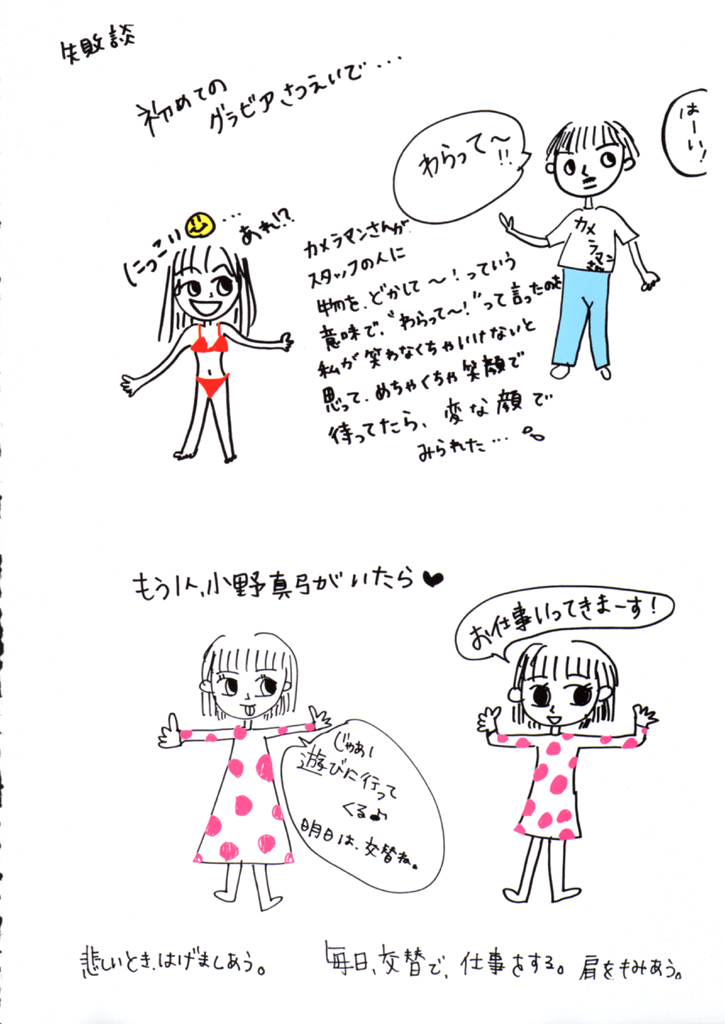 失敗談
初めての
グラビアさつえいで・・・
はーい!
わらって〜!!
にっこい・・・
あれ!?
カメラマンさんが
スタッフの人に
物を、どかして〜!っていう
意味で、"わらって〜!"って言ったのを
私が笑わなくちゃいけないと
思って、めちゃくちゃ笑顔で
待ってたら、変な顔で
みられた・・・
カメ
ラマン
さん
もう1人、小野真弓がいたら♥
お仕事いってきまーす!
じゃあ、
遊びに行って
くる♪
明日は、交替ね。
悲しいとき、はげましあう。
毎日、交替で、仕事をする。
肩をもみあう。